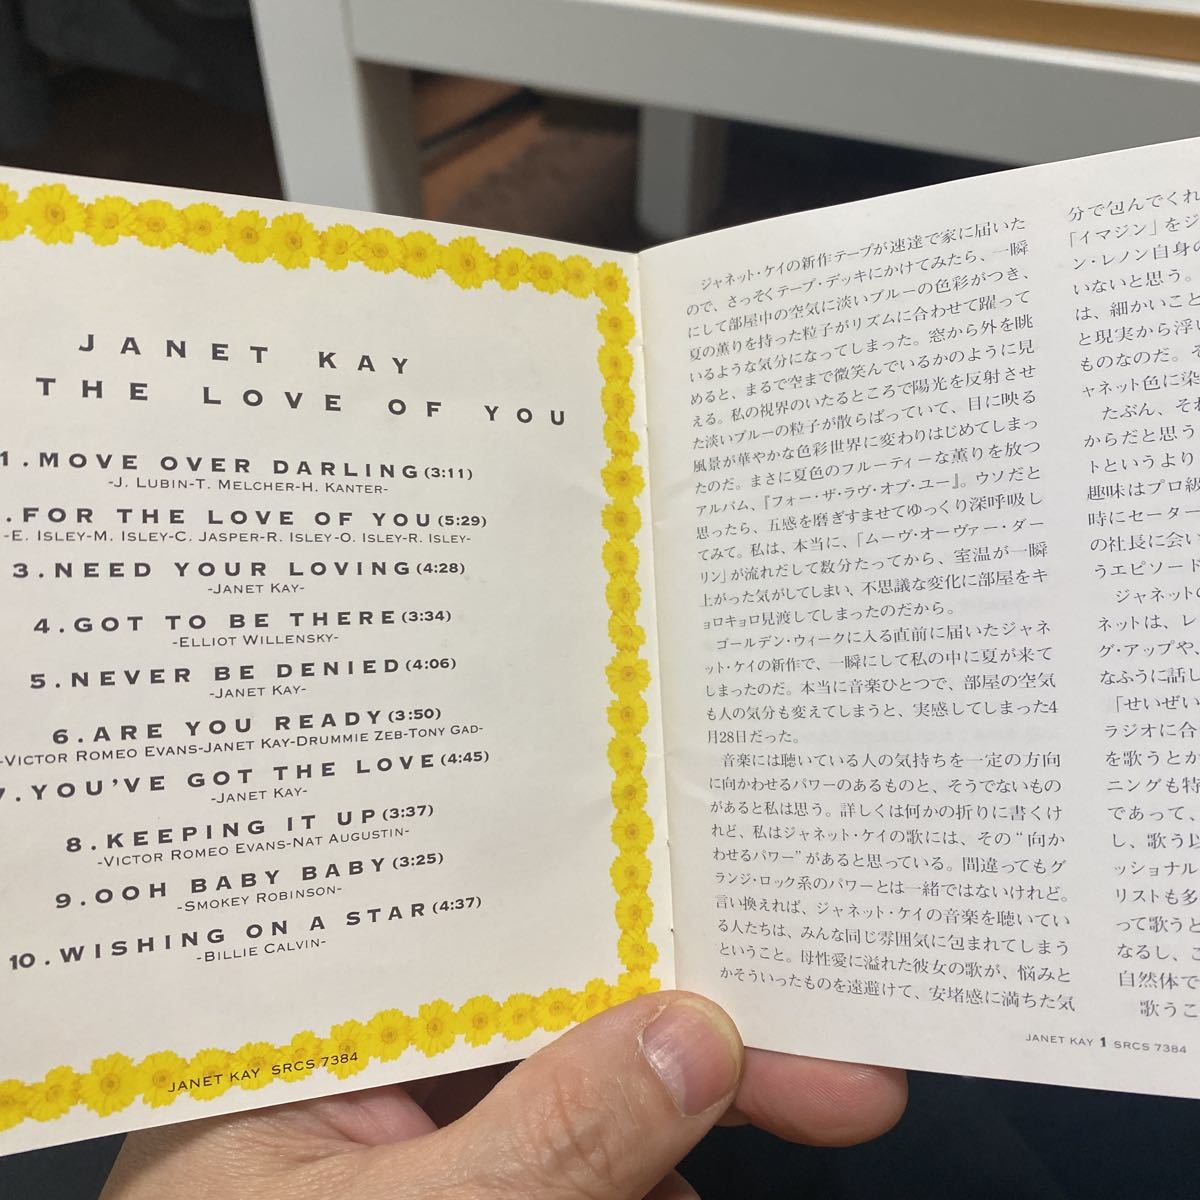 JANET KAY
THE LOVE OF YOU
1. MOVE OVER DARLING (3:11)
-J. LUBIN-T. MELCHER-H. KANTER-
. FOR THE LOVE OF YOU (5:29)
-E. ISLEY-M. ISLEY-C. JASPER-R. ISLEY-O. ISLEY-R. ISLEY-
3. NEED YOUR LOVING (4:28)
-JANET KAY-
4. GOT TO BE THERE (3:34)
-ELLIOT WILLENSKY-
5. NEVER BE DENIED (4:06)
-JANET KAY-
6. ARE YOU READY (3:50)
-VICTOR ROMEO EVANS-JANET KAY-DRUMMIE ZEB-TONY GAD-
7. YOU'VE GOT THE LOVE (4:45)
-JANET KAY-
8. KEEPING IT UP (3:37)
-VICTOR ROMEO EVANS-NAT AUGUSTIN-
9. OOH BABY BABY (3:25)
-SMOKEY ROBINSON-
10. WISHING ON A STAR (4:37)
-BILLIE CALVIN-
JANET KAY SRCS 7384
ジャネット・ケイの新作テープが速達で家に届いた
ので、さっそくテープ・デッキにかけてみたら、一瞬
にして部屋中の空気に淡いブルーの色彩がつき、
夏の薫りを持った粒子がリズムに合わせて躍って
いるような気分になってしまった。窓から外を眺
めると、まるで空まで微笑んでいるかのように見
える。私の視界のいたるところで陽光を反射させ
た淡いブルーの粒子が散らばっていて、目に映る
風景が華やかな色彩世界に変わりはじめてしまっ
たのだ。まさに夏色のフルーティーな薫りを放つ
アルバム、『フォー・ザ・ラヴ・オブ・ユー』。ウソだと
思ったら、五感を磨ぎすませてゆっくり深呼吸し
てみて。私は、本当に、「ムーヴ・オーヴァー・ダー
リン」が流れだして数分たってから、室温が一瞬
上がった気がしてしまい、不思議な変化に部屋をキ
ョロキョロ見渡してしまったのだから。
ゴールデン・ウィークに入る直前に届いたジャネ
ット・ケイの新作で、一瞬にして私の中に夏が来て
しまったのだ。本当に音楽ひとつで、部屋の空気
も人の気分も変えてしまうと、実感してしまった4
月28日だった。
音楽には聴いている人の気持ちを一定の方向
に向かわせるパワーのあるものと、そうでないもの
があると私は思う。詳しくは何かの折りに書くけ
れど、私はジャネット・ケイの歌には、その“向か
わせるパワー”があると思っている。間違ってもグ
ランジ・ロック系のパワーとは一緒ではないけれど。
言い換えれば、ジャネット・ケイの音楽を聴いてい
る人たちは、みんな同じ雰囲気に包まれてしまう
ということ。母性愛に溢れた彼女の歌が、悩みと
かそういったものを遠避けて、安堵感に満ちた気
分で包んでくれ
「イマジン」をジ
ン・レノン自身の
いないと思う。
は、細かいこと
と現実から浮い
ものなのだ。そ
ャネット色に染
たぶん、それ
からだと思う
トというより
趣味はプロ級
時にセーター
の社長に会い
うエピソード
ジャネットの
ネットは、レ
グ・アップや、
なふうに話し
「せいぜい
ラジオに合
を歌うとか
ニングも特
であって、
し、歌う以
ッショナル
リストも多
って歌うと
なるし、こ
自然体で
歌うこ
JANET KAY 1 SRCS 7384